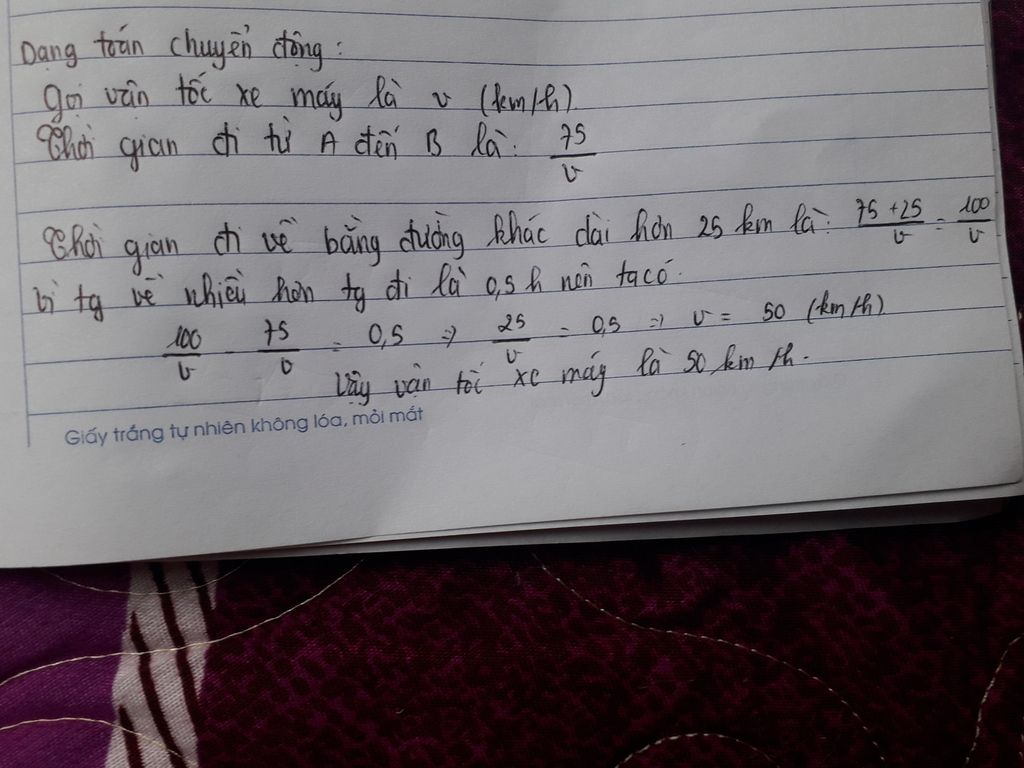 Dạng toán chuyển động:
Gọi vận tốc xe máy là v (km/h)
Thời gian đi từ A đến B là: 75/v
Thời gian đi về bằng đường khác dài hơn 25 km là: (75+25)/v = 100/v
Vì tg về nhiều hơn tg đi là 0,5 h nên ta có:
100/v - 75/v = 0,5 => 25/v = 0,5 => v = 50 (km/h)
Vậy vận tốc xe máy là 50 km/h.
Giấy trắng tự nhiên không lóa, mỏi mắt